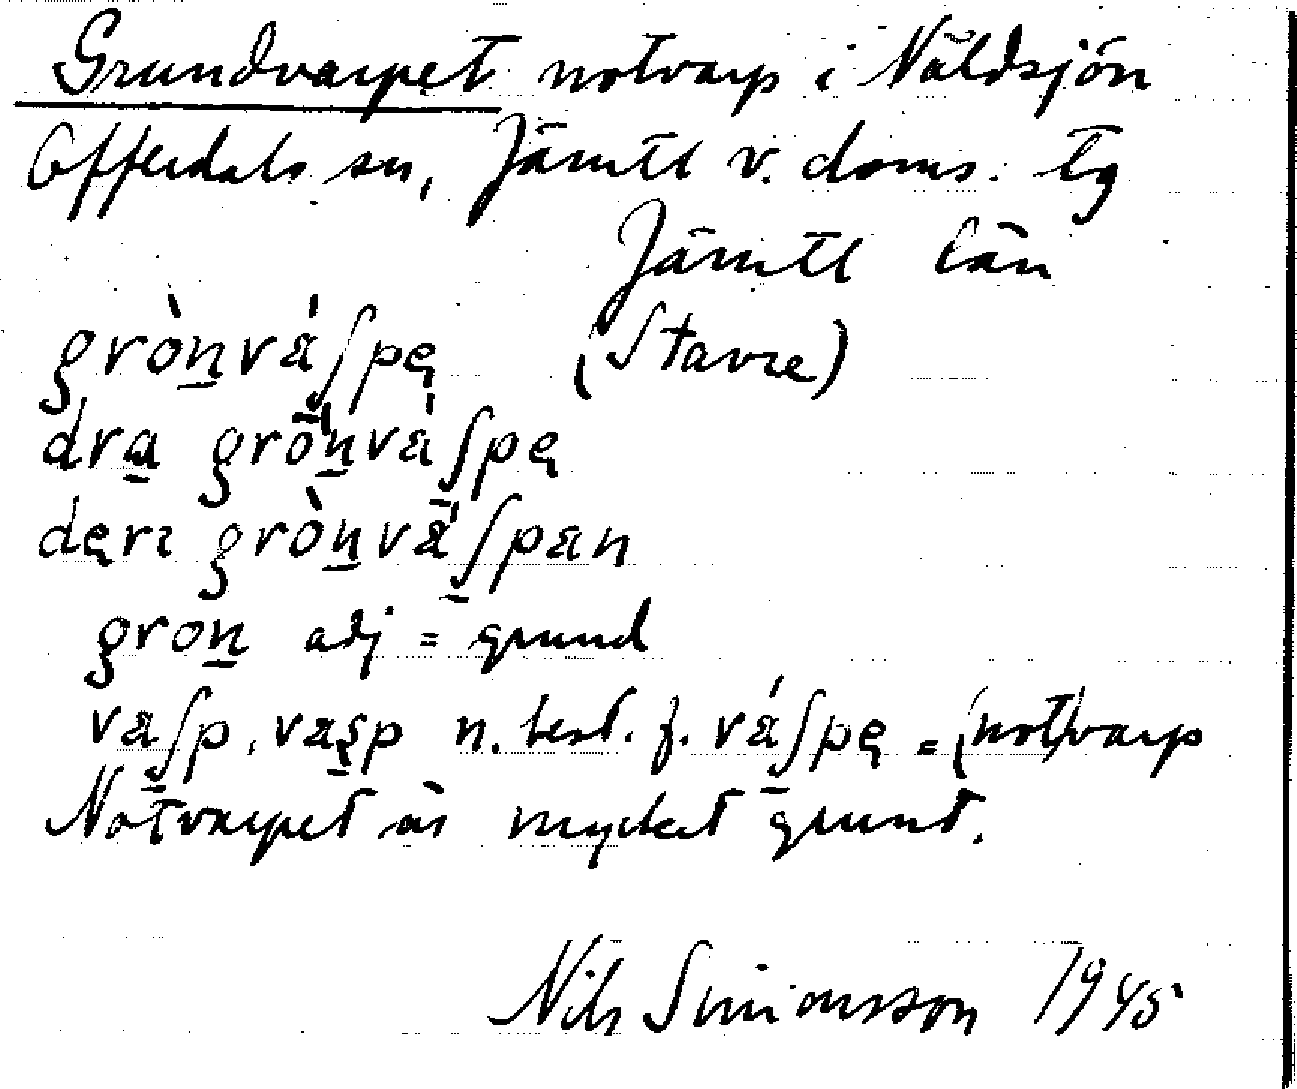 Grundvarpet notvarp i Näldsjön
Offerdals sn, Jämtl v. doms. lg
Jämtl län
grònvá̱ʃpę (Stavre)
dra̱ gròṉváʃ̱pę
dęrı gròṉváʃ̱pan
groṉ adj = grund
vaʃ̱p, vaş̱p n. best. f. váʃ̱pę = (not)varp
Notvarpet är mycket grunt.
Nils Simonsson 1945